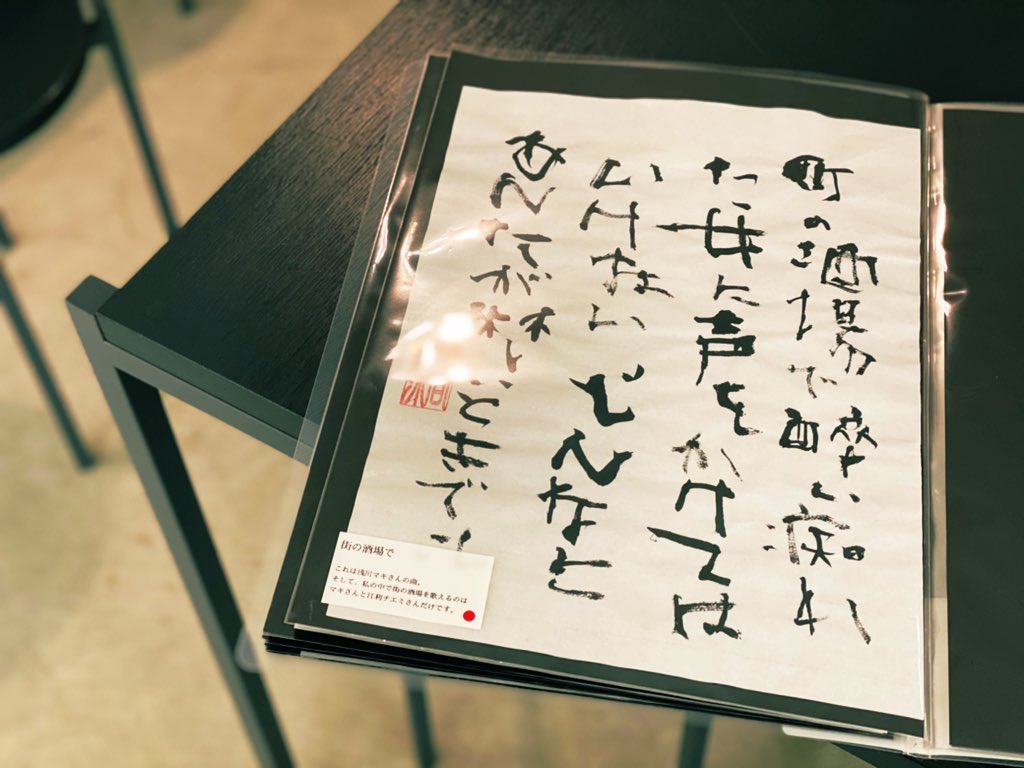 町の酒場で酔い痴れ
た女に声をかけては
いけない どんなに
あんたが淋しいときで
街の酒場で
これは浅川マキさんの曲。
そして、私の中で街の酒場を歌えるのは
マキさんと江利チエミさんだけです。